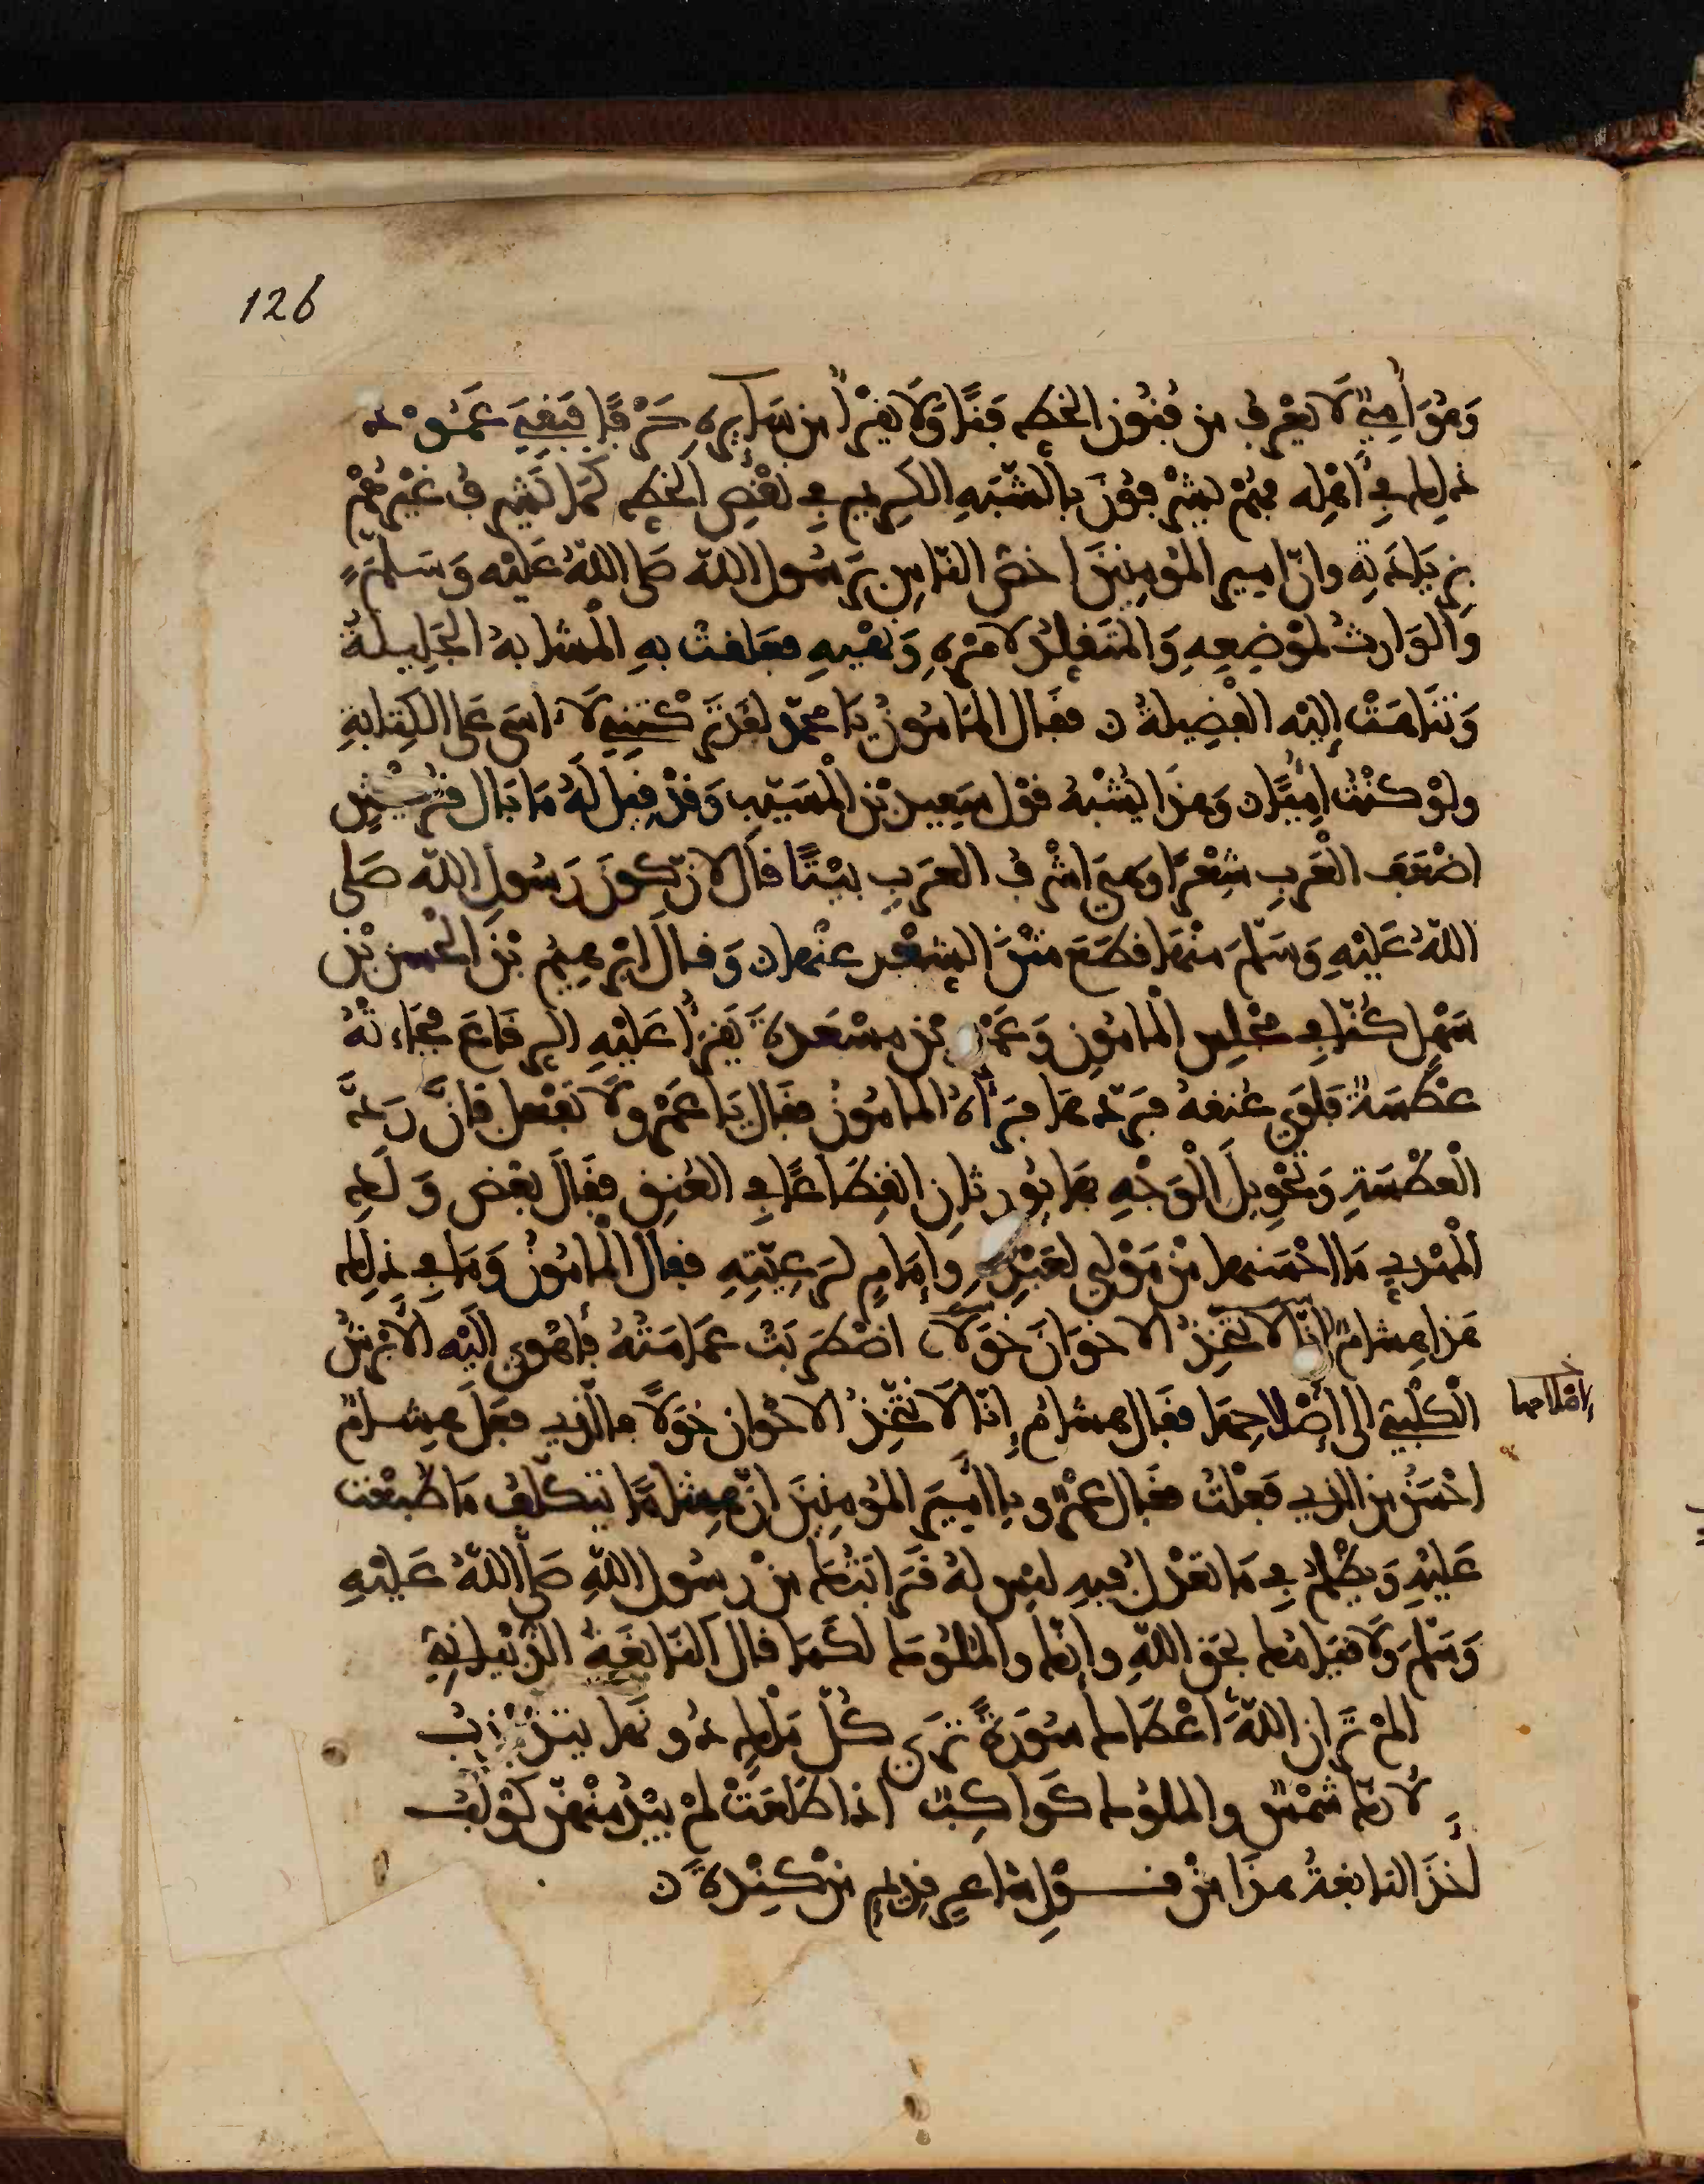 126
وَهُوَ أُمِيٌّ لَا يَعْرِفُ من فُنُونِ الخط فَنًّا وَلَا يَقْرَأُ من سَايرِه حَرْفًا فَبَقِيَ عَمُودُ
ذلك فِي أَهْلِه فَهُمْ يَشْرفُونَ بالشَّبَهِ الكَرِيمِ فِي نَقْصِ الخَط كَمَا يَشْرفُ غَيْرهُمْ
بِزِيَادَتِهِ وانّ امير المؤمِنِينَ اخصّ النّاسِ بِرَسُول اللّه صَلى اللّهُ عَلَيْه وَسَلّمَ
وَالوَارِثُ لمَوْضِعِهِ وَالمتَقلِدُ لامْرِهِ وَنَهْيِهِ فعَلقَتْ بهِ الْمشَابهُ الجَلِيلَةُ
وَتَنَاهَتْ إليْه الفضِيلةُ ن فقَال المَامُونُ يَا محمّد لقَدْ تَركْتَنِي لَا اسَى عَلى الكِتَابَةِ
ولوْ كنْتُ أمِيًّا ن وَهذَا يُشْبهُ قوْل سَعِيد بْنِ الْمسَيّب وَقدْ قِيلَ لَهُ مَا بَال قُرَيْشٍ
اضْعَف الْعَربِ شِعْرًا وَهيَ اشْرفُ العَرَبِ بيْتًا قالَ لانّ كوْنَ رَسُولِ اللّه صَلى
اللّهُ عَلَيْهِ وَسَلّمَ منْهَا قطَعَ متْنَ الشعْر عنْهَا ن وَقالَ ابْرهِيمُ بْنُ الْحسَن بْن
سَهْل كُنّا فِي مَجْلِس الْمامُونِ وَعَمْرو بْن مسْعَدة يَقْرَأُ عَلَيْهِ الرقَاعَ فجَاءتْهُ
عَطْسَةٌ فَلوَى عُنقهُ فرَدّهَا فرَأهُ المامُونُ فقَال يَا عَمْرو لَا تَفْعل فانَّ رَدَّ
الْعَطْسَةِ وَتَحْوِيلَ الْوَجْهِ بهَا يُورِثانِ انقِطَاعًا فِي العُنِق فقَالَ بَعْض وَلَدِ
المَهْدِي مَا احْسَنهَا منْ مَوْلى لعَبْدِهِ وإمَامٍ لرَعِيّتِهِ فقال الْمامُونُ وَمَا فِي ذلِك
هذا هِشامٌ اضْطَرَبَتْ عمَامَتُهُ فأهْوى إلَيْه الابْرَشُ
الكَلْبيّ الى إصْلاحِهَا فقَال هِشامُ إنّا لَا نتّخِذُ الاخْوانَ خَوَلًا فالّذِي فعَلَ هِشامٌ
إصْلاحها
احْسَنُ من الذِي فَعَلْتُ فقَال عَمْرو يا اميرَ المؤمِنِينَ انّ هِشامًا يَتَكَلّفُ مَا طُبِعْتَ
عَليْهِ وَيَظْلمُ فِي مَا تعْدِلُ فِيهِ ليْس لهُ قَرَابَتُك من رسُول اللّهِ صَلى اللّهُ عَلَيْهِ
وَسَلّمَ وَلَا قيَامُك بحَق اللّهِ وإنّك والمُلُوك لكمَا قال النّابغَةُ الذُّبْيَانِيّ
الَمْ تَر ان اللّهَ أعْطَاك سُوَرَةً تَرَى كُلّ مَلْكٍ دُونَهَا يتذَبْذَبُ
لأنّك شَمْسٌ والملُوك كَوَاكِبٌ اذا طَلعَتْ لمْ يَبْدُ منْهنّ كَوْكَبُ
أخَذَ النابغةُ هذَا منْ قَوْل شاعِرٍ قدِيمٍ منْ كِنْدة ن